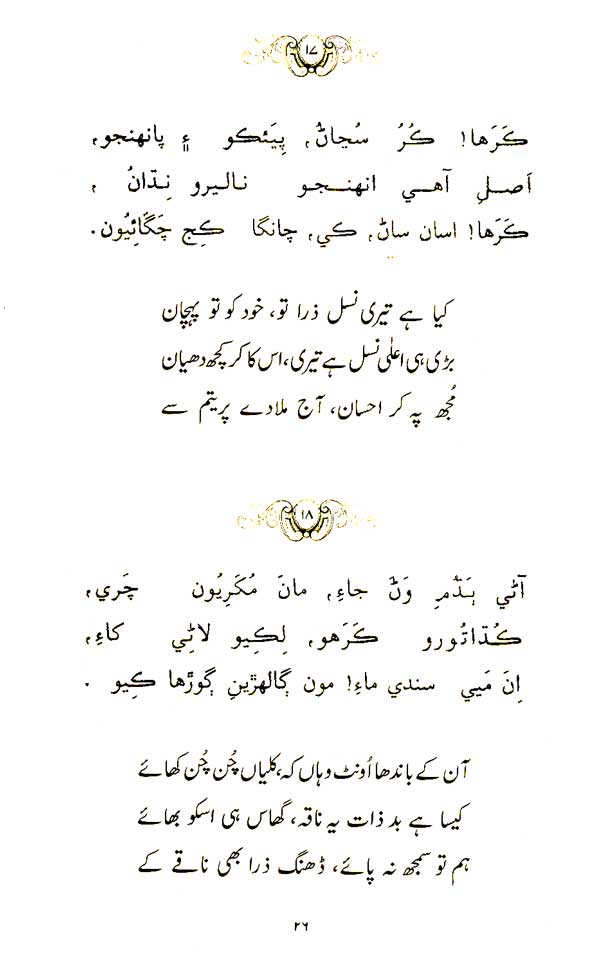 ۱۷
ڪَرَها! ڪُرُ سُڃاڻُ، پِيَئڪو ۽ پانهنجو،
اَصلِ آهي انهنجو ناليرو نِڌانُ ،
ڪَرَها! اسان ساڻُ، ڪي، چانگا ڪِج چَڱائِيُون.
کیا ہے تیری نسل ذرا تو، خود کو تو پہچان
بڑی ہی اعلٰی نسل ہے تیری، اس کا کر کچھ دھیان
مُجھ پہ کر احسان، آج ملادے پریتم سے
۱۸
آڻي ٻَڌُمِ وَڻَ جاءِ، مانَ مُکَڙِيُون چَري،
ڪُڌاتُورو ڪَرَهو، لِڪِيو لاڻِي کاءِ،
اِنَ مَيي سندي ماءِ! مون ڳالهڙينِ ڳوڙها ڪِيو .
آن کے باندھا اُونٹ وہاں کہ، کلیاں چُن چُن کھائے
کیسا ہے بد ذات یہ ناقہ، گھاس ہی اسکو بھائے
ہم تو سمجھ نہ پائے، ڈھنگ ذرا بھی ناقے کے
۲۶